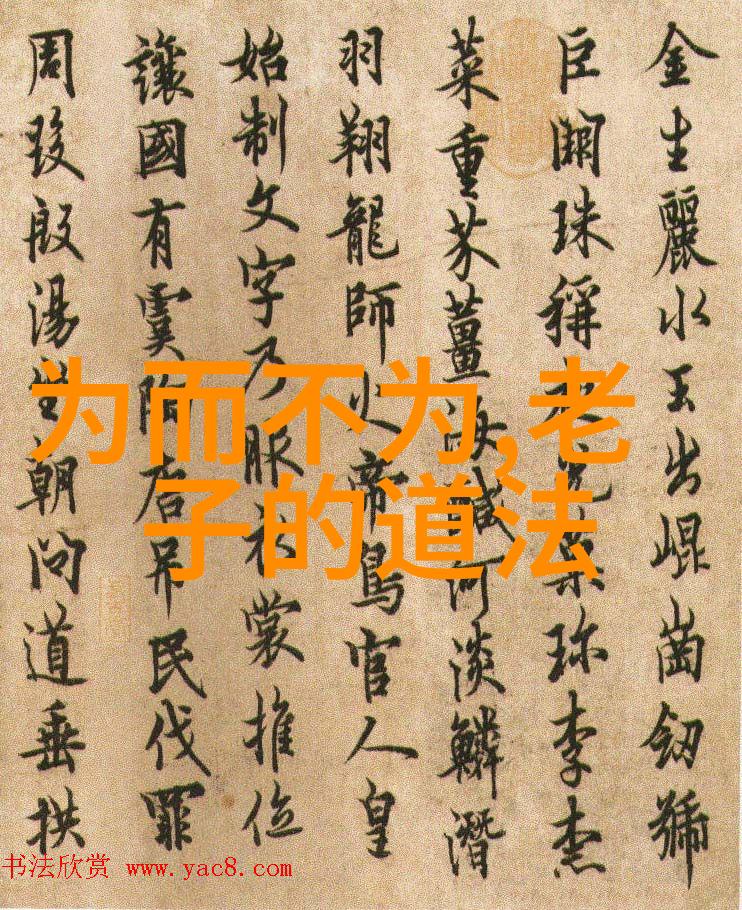 金生麗水玉出崐崗釼號
巨闕珠稱夜光菓珍李柰
菜重芥薑海醎河淡鱗潛
羽翔龍師火帝鳥官人皇
始制文字乃服衣裳推位
讓國有虞陶唐弔民伐罪
周發殷湯坐朝問道垂拱
为而不为,老
子的道法
书法欣赏 www.yac8.com